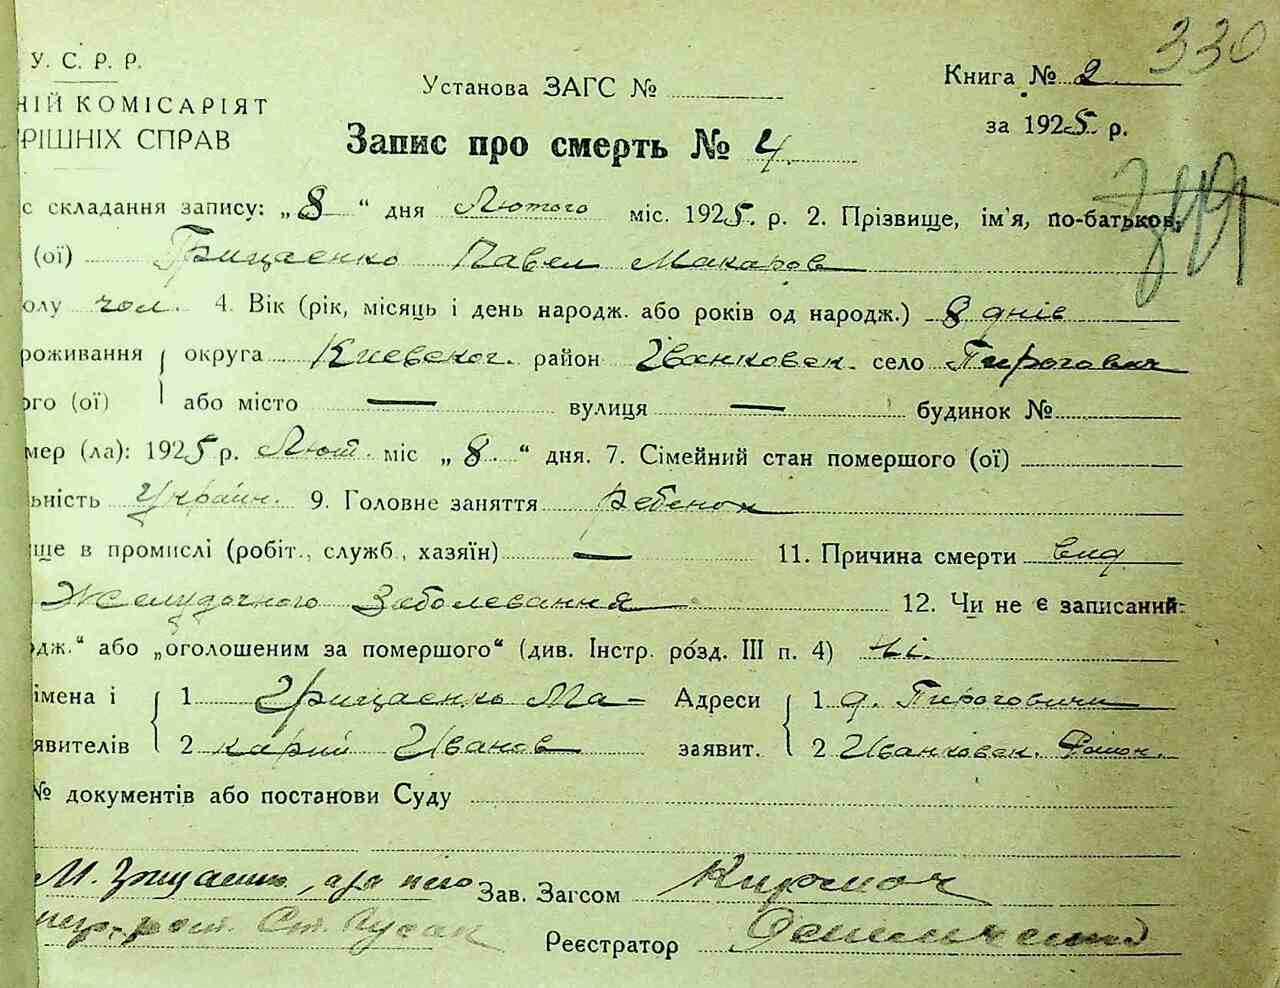 330
У. С. Р. Р.
Установа ЗАГС №
Книга № 2
НІЙ КОМІСАРІЯТ
за 1925 р.
РІШНІХ СПРАВ
Запис про смерть № 4
с складання запису: „8“ дня Лютого міс. 1925. р. 2. Прізвище, ім'я, по-батьков.
(ої) Грицаенко Павел Макаров
олу чол. 4. Вік (рік, місяць і день народж. або років од народж.) 8 днів
роживання округа Киевског. район Іванковск. село Пирогович
ого (ої) або місто — вулиця — будинок №
мер (ла): 1925 р. Лют. міс „8.“ дня. 7. Сімейний стан помершого (ої)
ьність Украін. 9. Головне заняття ребенок
ще в промислі (робіт., служб, хазяїн) — 11. Причина смерти вид
Желудочного Заболевання 12. Чи не є записаний:
дж.“ або „оголошеним за помершого“ (див. Інстр. розд. III п. 4) Ні.
імена і 1 Грицаенко Ма- Адреси 1 д. Пироговичи
явителів 2 карий Иванов заявит. 2 Иванковск. Район.
№ документів або постанови Суду
М. Грицаенко, а за него Зав. Загсом
Ст. Гусак
Реєстратор